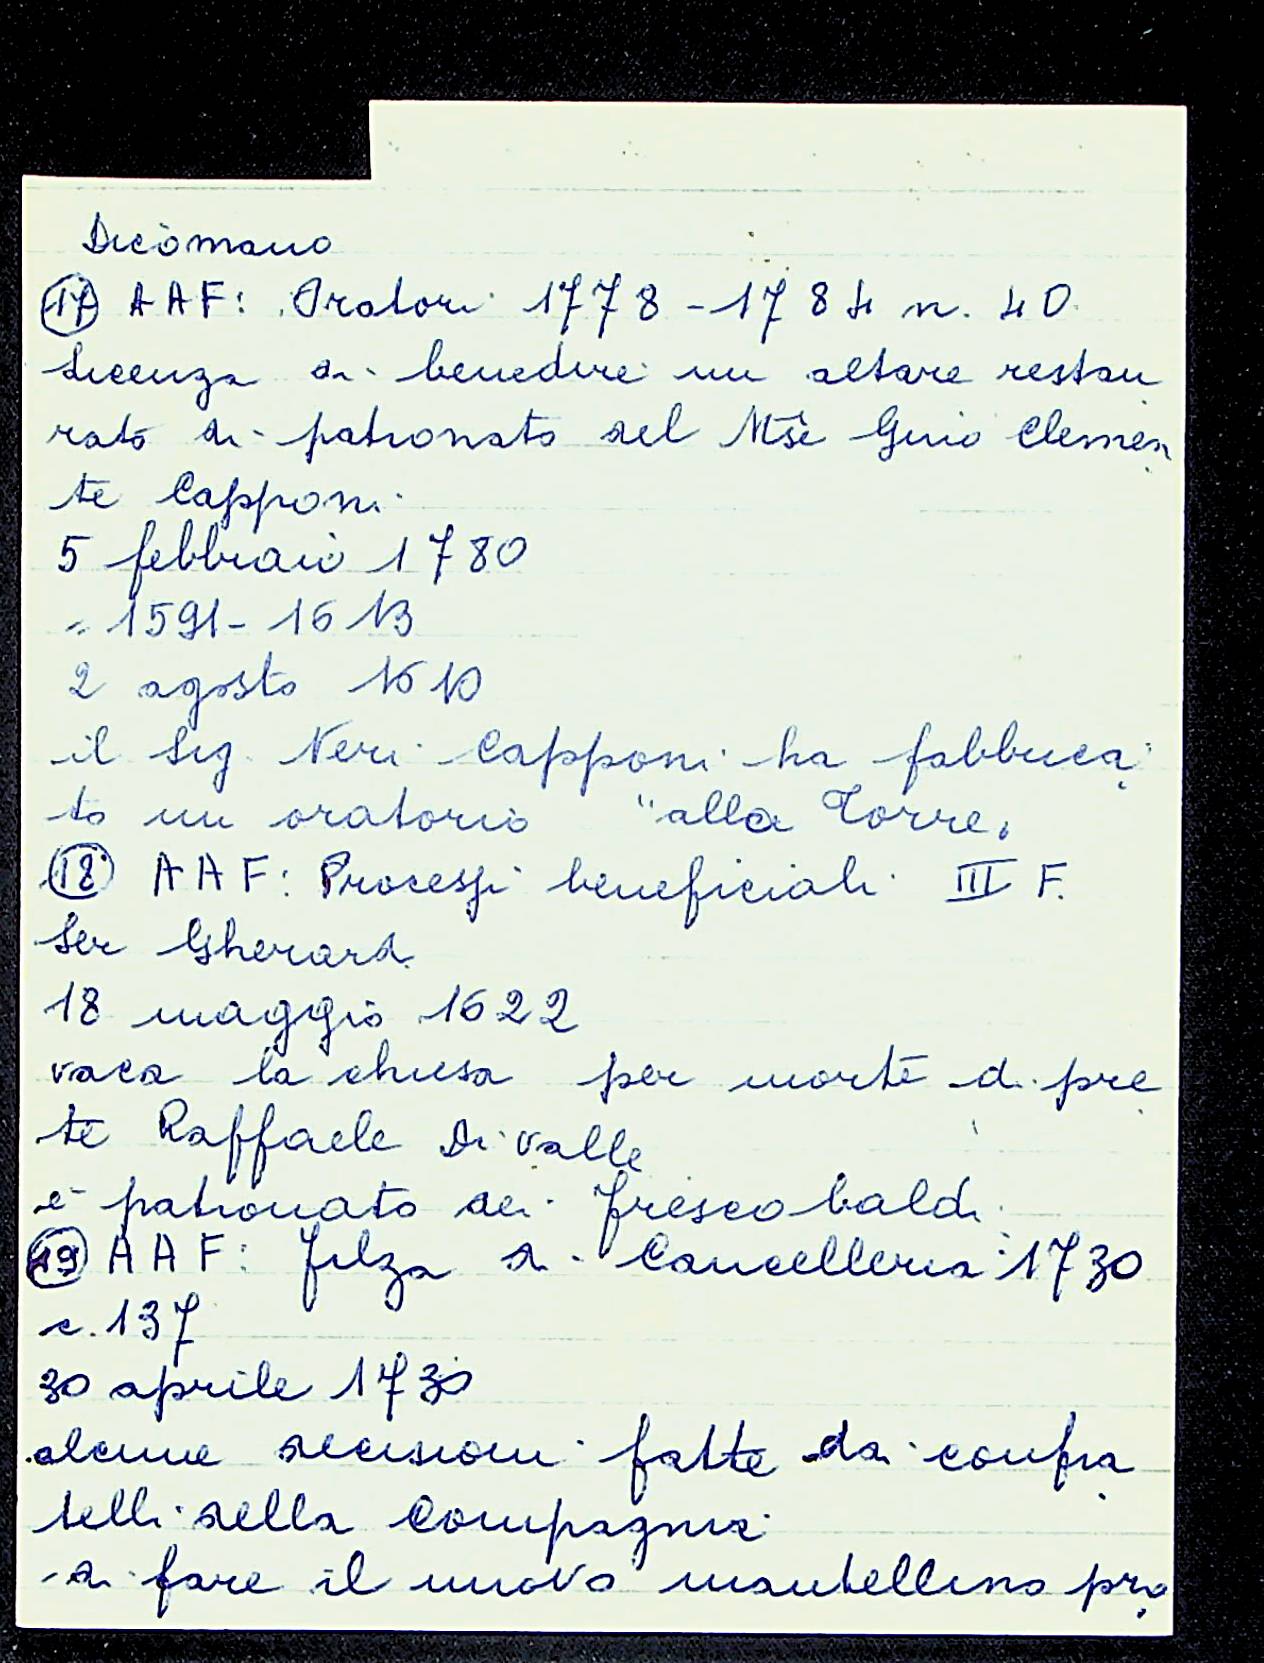 Dicomano
(17) AAF: Oratori 1778-1784 n. 40
Licenza di benedire un altare restau
rato di patronato del Mse Gino Clemen
te Capponi
5 febbraio 1780
" 1591-1613
2 agosto 1610
il Sig. Neri Capponi ha fabbrica
to un oratorio "alla Torre"
(18) AAF: Processi beneficiali III F.
Ser Gherardi
18 maggio 1622
vaca la chiesa per morte di pre
te Raffaele Di valle
è patronato dei Frescobaldi
(19) AAF: Filza di Cancelleria 1730
c. 137
30 aprile 1730
alcune decisioni fatte dai confra
telli della Compagnia
- di fare il nuovo mantellino pro